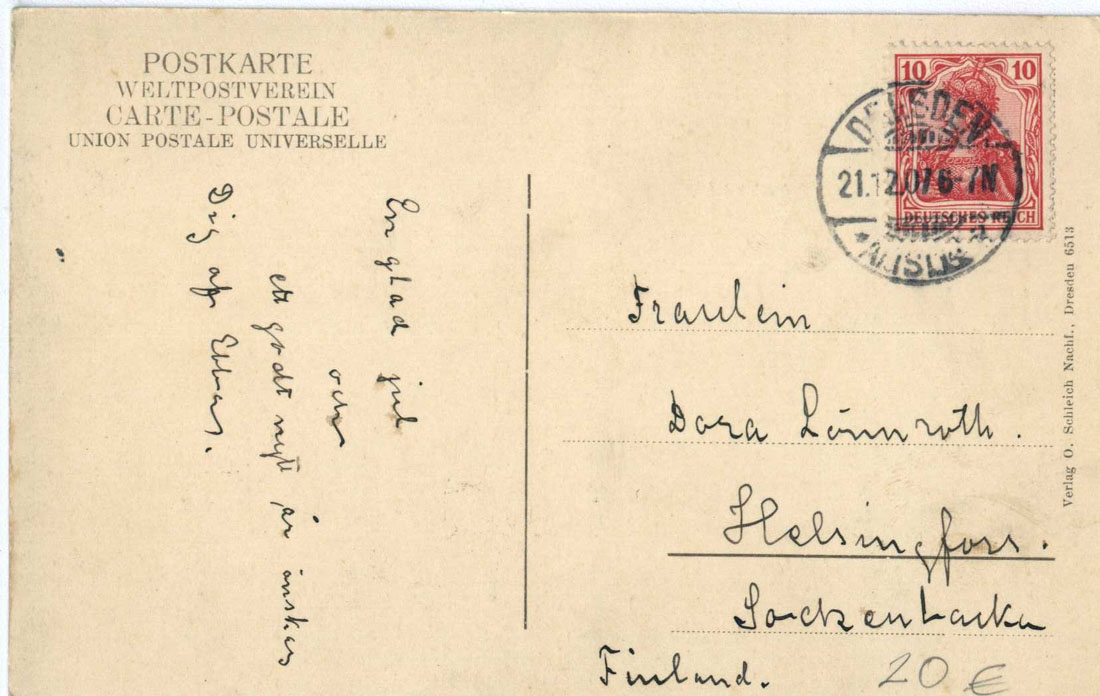 POSTKARTE
WELTPOSTVEREIN
CARTE-POSTALE
UNION POSTALE UNIVERSELLE
10 10
DEUTSCHES REICH
DRESDEN
21.12.07 6-7N
En glad jul
och
ett godt nytt år önskas
Dig af Ebba.
Fraulein
Dora Lönnroth.
Helsingfors.
Sockenbacka
Finland.
20 €
Verlag O. Schleich Nachf., Dresden 6513